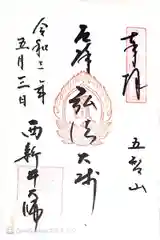 奉拝
五智山
弘法大師
令和二年
五月三日
西新井大師